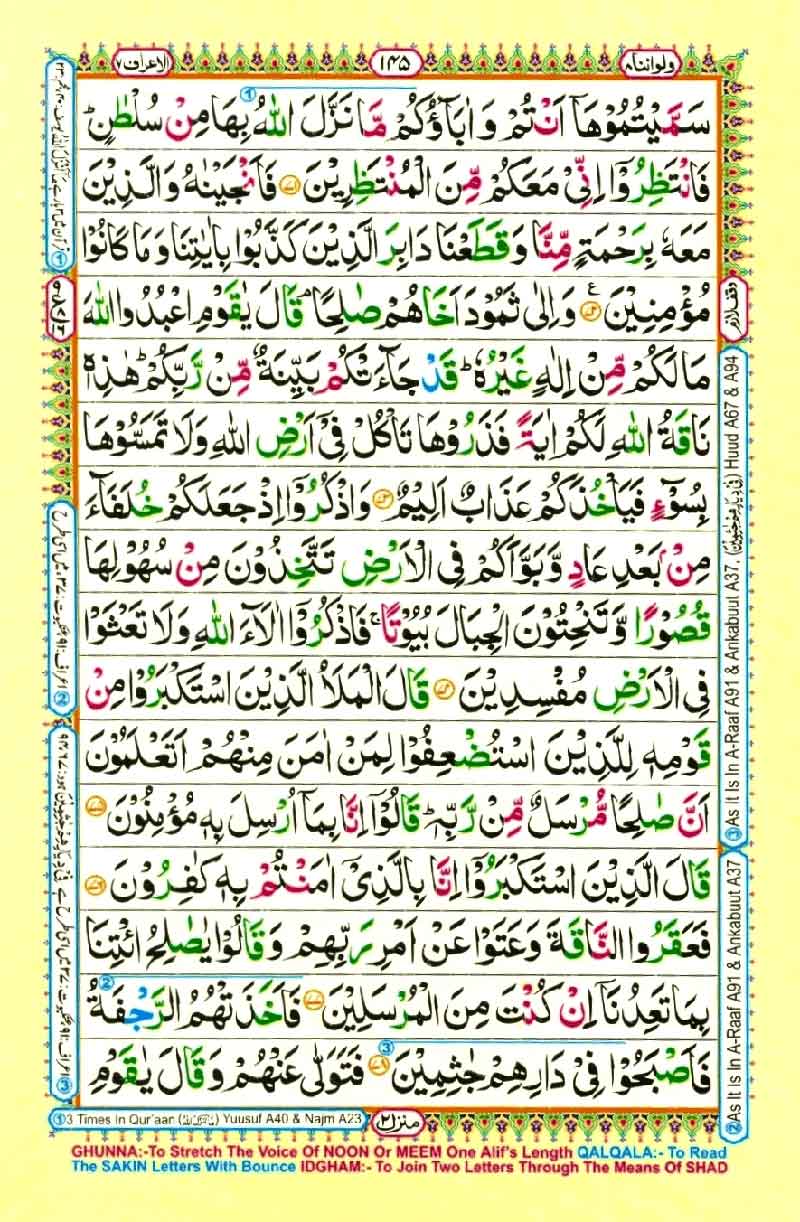 ولواننا ٨
١٤٥
الاعراف ٧
سَمَّيْتُمُوْهَاۤ اَنْتُمْ وَ اٰبَآؤُكُمْ مَّا نَزَّلَ اللّٰهُ بِهَا مِنْ سُلْطٰنٍ ؕ
فَانْتَظِرُوْۤا اِنِّیْ مَعَكُمْ مِّنَ الْمُنْتَظِرِیْنَ ﴿۷۱﴾ فَاَنْجَیْنٰهُ وَ الَّذِیْنَ
مَعَهٗ بِرَحْمَةٍ مِّنَّا وَ قَطَعْنَا دَابِرَ الَّذِیْنَ كَذَّبُوْا بِاٰیٰتِنَا وَ مَا كَانُوْا
مُؤْمِنِیْنَ ﴿۷۲﴾ ع وَ اِلٰی ثَمُوْدَ اَخَاهُمْ صٰلِحًا ۘ قَالَ یٰقَوْمِ اعْبُدُوا اللّٰهَ
مَا لَكُمْ مِّنْ اِلٰهٍ غَیْرُهٗ ؕ قَدْ جَآءَتْكُمْ بَیِّنَةٌ مِّنْ رَّبِّكُمْ ؕ هٰذِهٖ
نَاقَةُ اللّٰهِ لَكُمْ اٰیَةً فَذَرُوْهَا تَاْكُلْ فِیْۤ اَرْضِ اللّٰهِ وَ لَا تَمَسُّوْهَا
بِسُوْٓءٍ فَیَاْخُذَكُمْ عَذَابٌ اَلِیْمٌ ﴿۷۳﴾ وَ اذْكُرُوْۤا اِذْ جَعَلَكُمْ خُلَفَآءَ
مِنْۢ بَعْدِ عَادٍ وَّ بَوَّاَكُمْ فِی الْاَرْضِ تَتَّخِذُوْنَ مِنْ سُهُوْلِهَا
قُصُوْرًا وَّ تَنْحِتُوْنَ الْجِبَالَ بُیُوْتًا ۚ فَاذْكُرُوْۤا اٰلَآءَ اللّٰهِ وَ لَا تَعْثَوْا
فِی الْاَرْضِ مُفْسِدِیْنَ ﴿۷۴﴾ قَالَ الْمَلَاُ الَّذِیْنَ اسْتَكْبَرُوْا مِنْ
قَوْمِهٖ لِلَّذِیْنَ اسْتُضْعِفُوْا لِمَنْ اٰمَنَ مِنْهُمْ اَتَعْلَمُوْنَ
اَنَّ صٰلِحًا مُّرْسَلٌ مِّنْ رَّبِّهٖ ؕ قَالُوْۤا اِنَّا بِمَاۤ اُرْسِلَ بِهٖ مُؤْمِنُوْنَ ﴿۷۵﴾
قَالَ الَّذِیْنَ اسْتَكْبَرُوْۤا اِنَّا بِالَّذِیْۤ اٰمَنْتُمْ بِهٖ كٰفِرُوْنَ ﴿۷۶﴾
فَعَقَرُوا النَّاقَةَ وَ عَتَوْا عَنْ اَمْرِ رَبِّهِمْ وَ قَالُوْا یٰصٰلِحُ ائْتِنَا
بِمَا تَعِدُنَاۤ اِنْ كُنْتَ مِنَ الْمُرْسَلِیْنَ ﴿۷۷﴾ فَاَخَذَتْهُمُ الرَّجْفَةُ
فَاَصْبَحُوْا فِیْ دَارِهِمْ جٰثِمِیْنَ ﴿۷۸﴾ فَتَوَلّٰی عَنْهُمْ وَ قَالَ یٰقَوْمِ
وقف لازم
③ As It Is In A-Raaf A91 & Ankabuut A37. (فِیْ دِیَارِهِمْ جٰثِمِیْنَ) Huud A67 & A94
② As It Is In A-Raaf A91 & Ankabuut A37
① 3 Times In Qur'aan Yuusuf A40 & Najm A23
منزل ٢
GHUNNA:-To Stretch The Voice Of NOON Or MEEM One Alif's Length QALQALA:- To Read
The SAKIN Letters With Bounce IDGHAM:- To Join Two Letters Through The Means Of SHAD